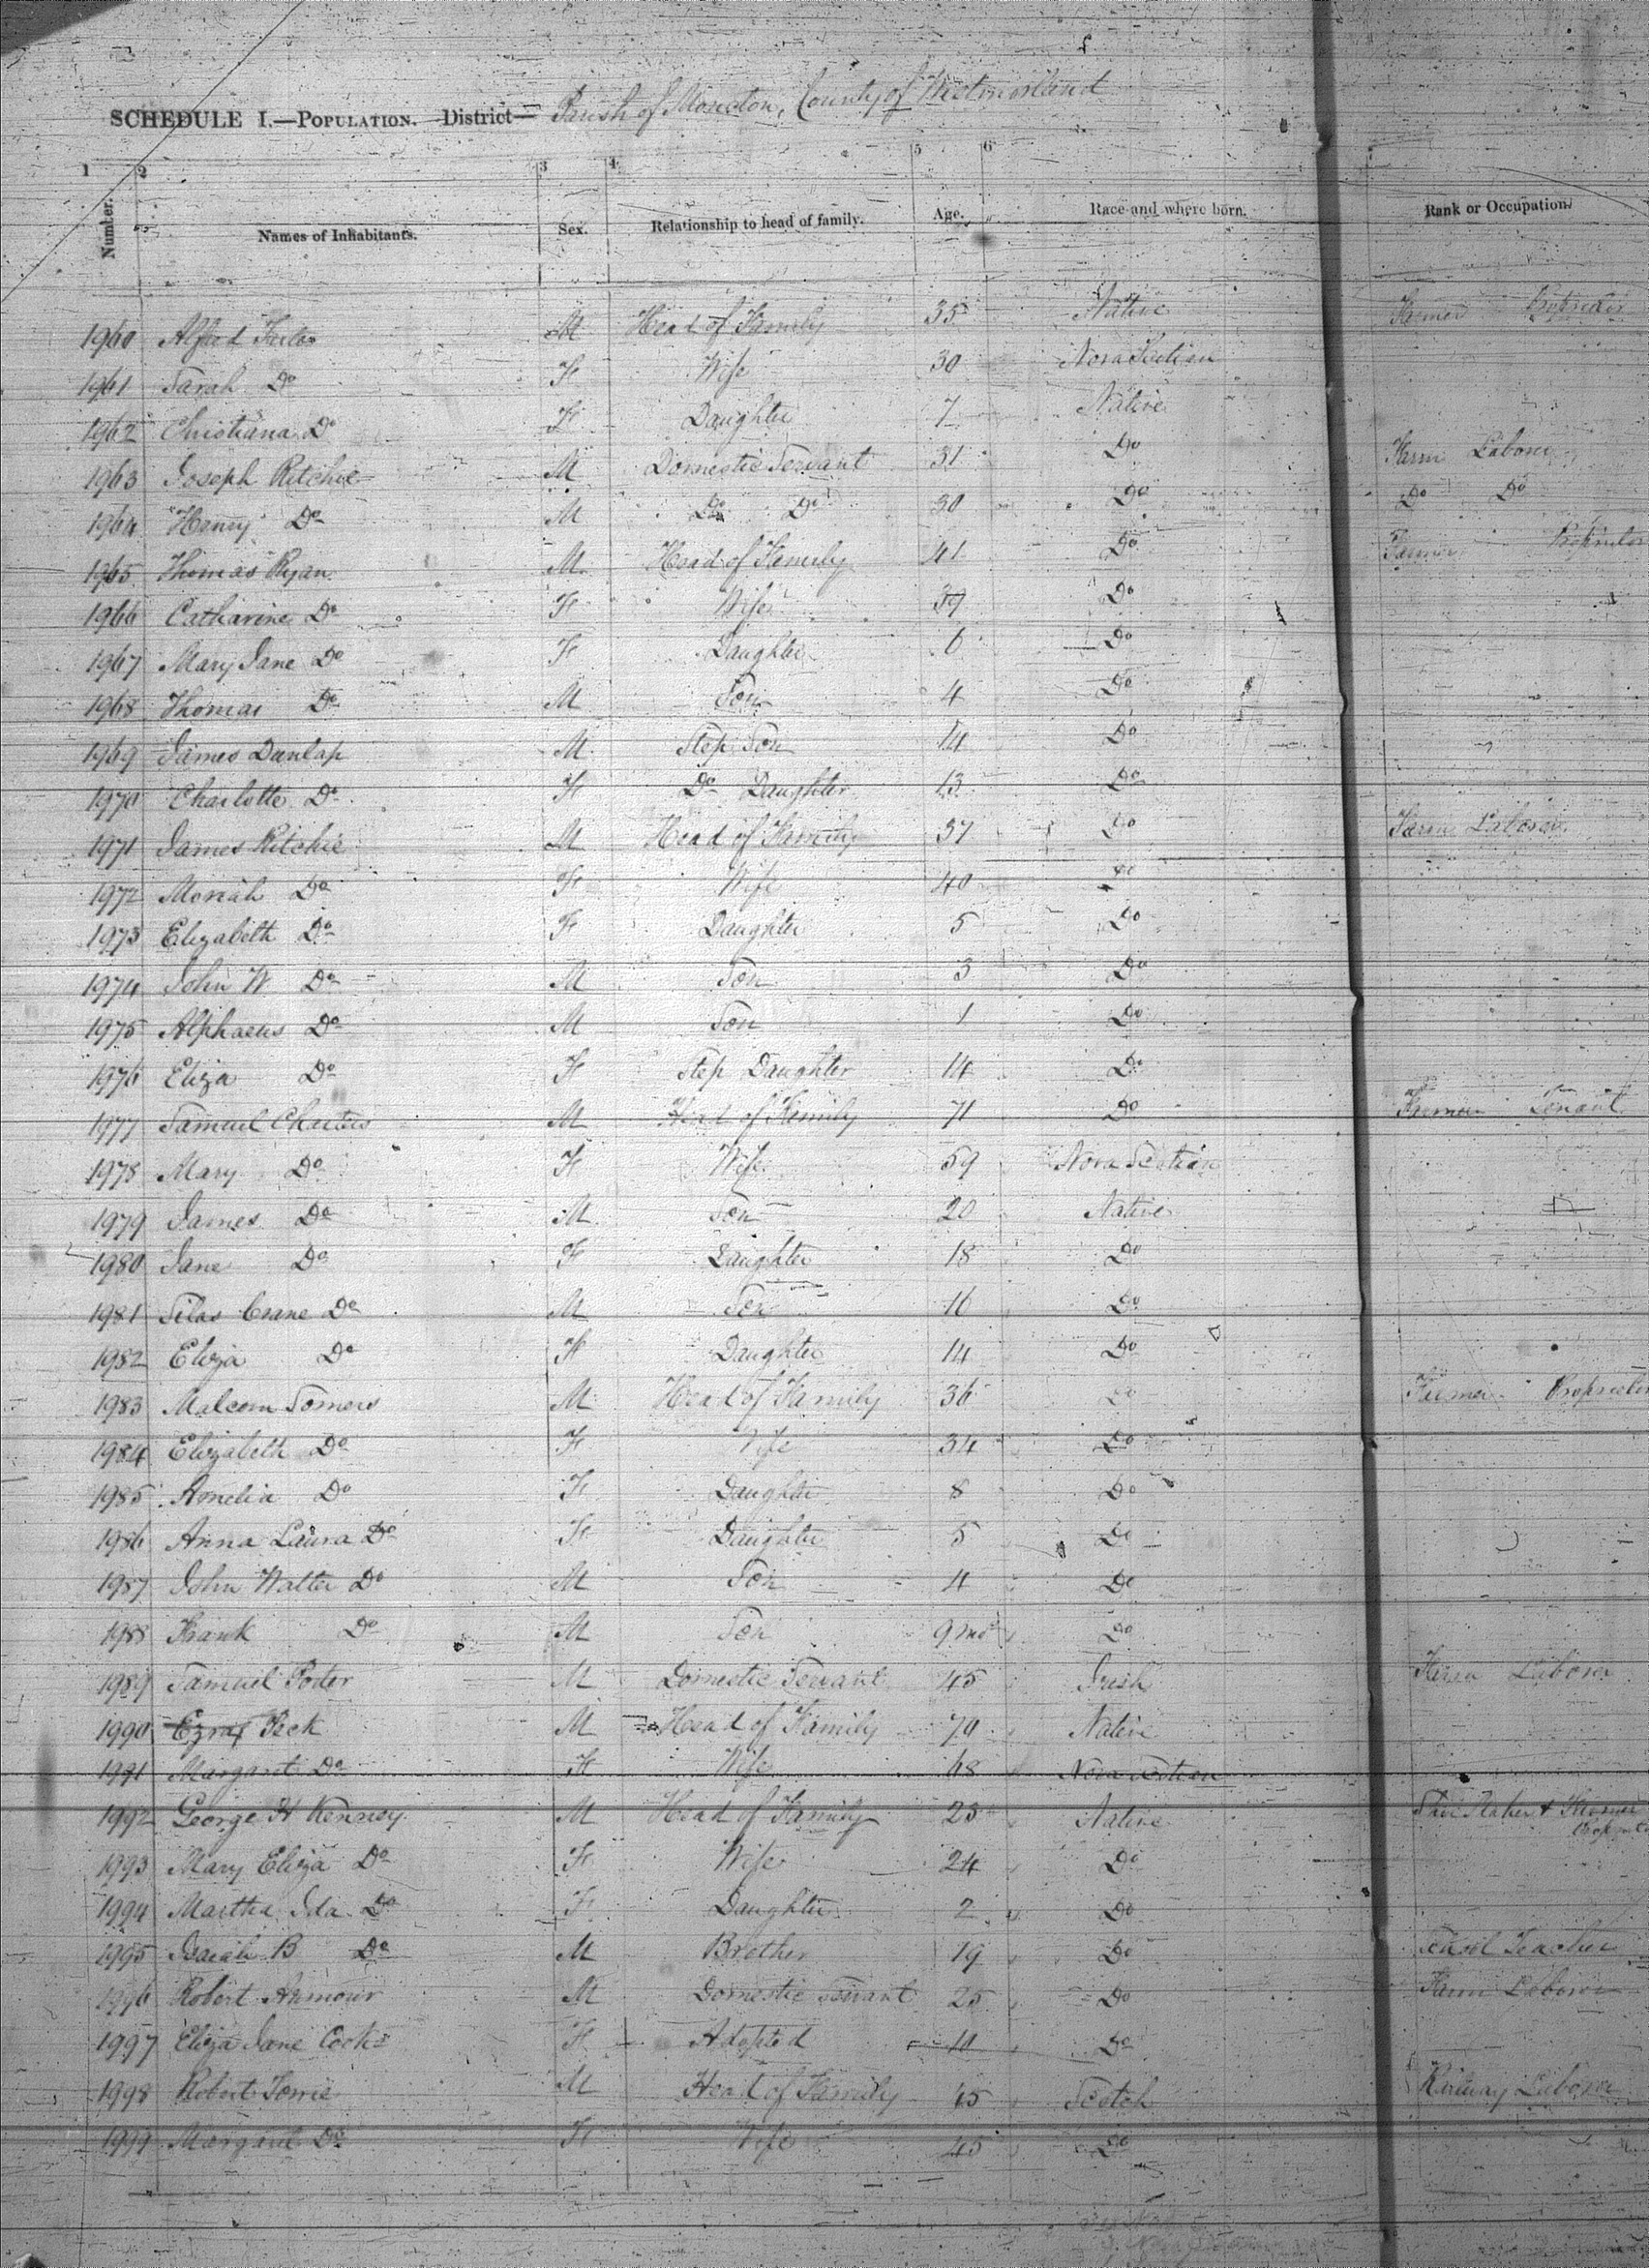 SCHEDULE I.—POPULATION. District— Parish of Moncton, County of Westmorland
1 2 3 4 5 6
Number. Names of Inhabitants. Sex. Relationship to head of family. Age. Race and where born. Rank or Occupation
1960 Alfred M Head of Family 35 Native Farmer Proprietor
1961 Sarah Do F Wife 30 Nova Scotian
1962 Christiana Do F Daughter 7 Native
1963 Joseph Ritchie M Domestic Servant 31 Do Farm Laborer
1964 Henry Do M Do Do 30 Do Do Do
1965 Thomas Ryan M Head of Family 41 Do Farmer Proprietor
1966 Catharine Do F Wife 39 Do
1967 Mary Jane Do F Daughter 6 Do
1968 Thomas Do M Son 4 Do
1969 James Dunlap M Step Son 14 Do
1970 Charlotte Do F Do Daughter 13 Do
1971 James Ritchie M Head of Family 37 Do Farm Laborer
1972 Moriah Do F Wife 40 Do
1973 Elizabeth Do F Daughter 5 Do
1974 John W Do M Son 3 Do
1975 Alphaeus Do M Son 1 Do
1976 Eliza Do F Step Daughter 14 Do
1977 Samuel Charters M Head of Family 71 Do Farmer Tenant
1978 Mary Do F Wife 59 Nova Scotian
1979 James Do M Son 20 Native
1980 Jane Do F Daughter 18 Do
1981 Silas Crane Do M Son 16 Do
1982 Eliza Do F Daughter 14 Do
1983 Malcom Somers M Head of Family 36 Do Farmer Proprietor
1984 Elizabeth Do F Wife 34 Do
1985 Amelia Do F Daughter 8 Do
1986 Anna Laura Do F Daughter 5 Do
1987 John Walter Do M Son 4 Do
1988 Frank Do M Son 9 mos Do
1989 Samuel Porter M Domestic Servant 45 Irish Farm Laborer
1990 Ezra Peck M Head of Family 70 Native
1991 Margaret Do F Wife 68 Nova Scotian
1992 George H Kenney M Head of Family 25 Native & Farmer
1993 Mary Eliza Do F Wife 24 Do
1994 Martha Ida Do F Daughter 2 Do
1995 Isaiah B Do M Brother 19 Do School Teacher
1996 Robert Armour M Domestic Servant 25 Do Farm Laborer
1997 Eliza Jane Cook F Adopted 10 Do
1998 Robert M Head of Family 45 Scotch Railway Laborer
1999 Margaret Do F Wife 45 Do